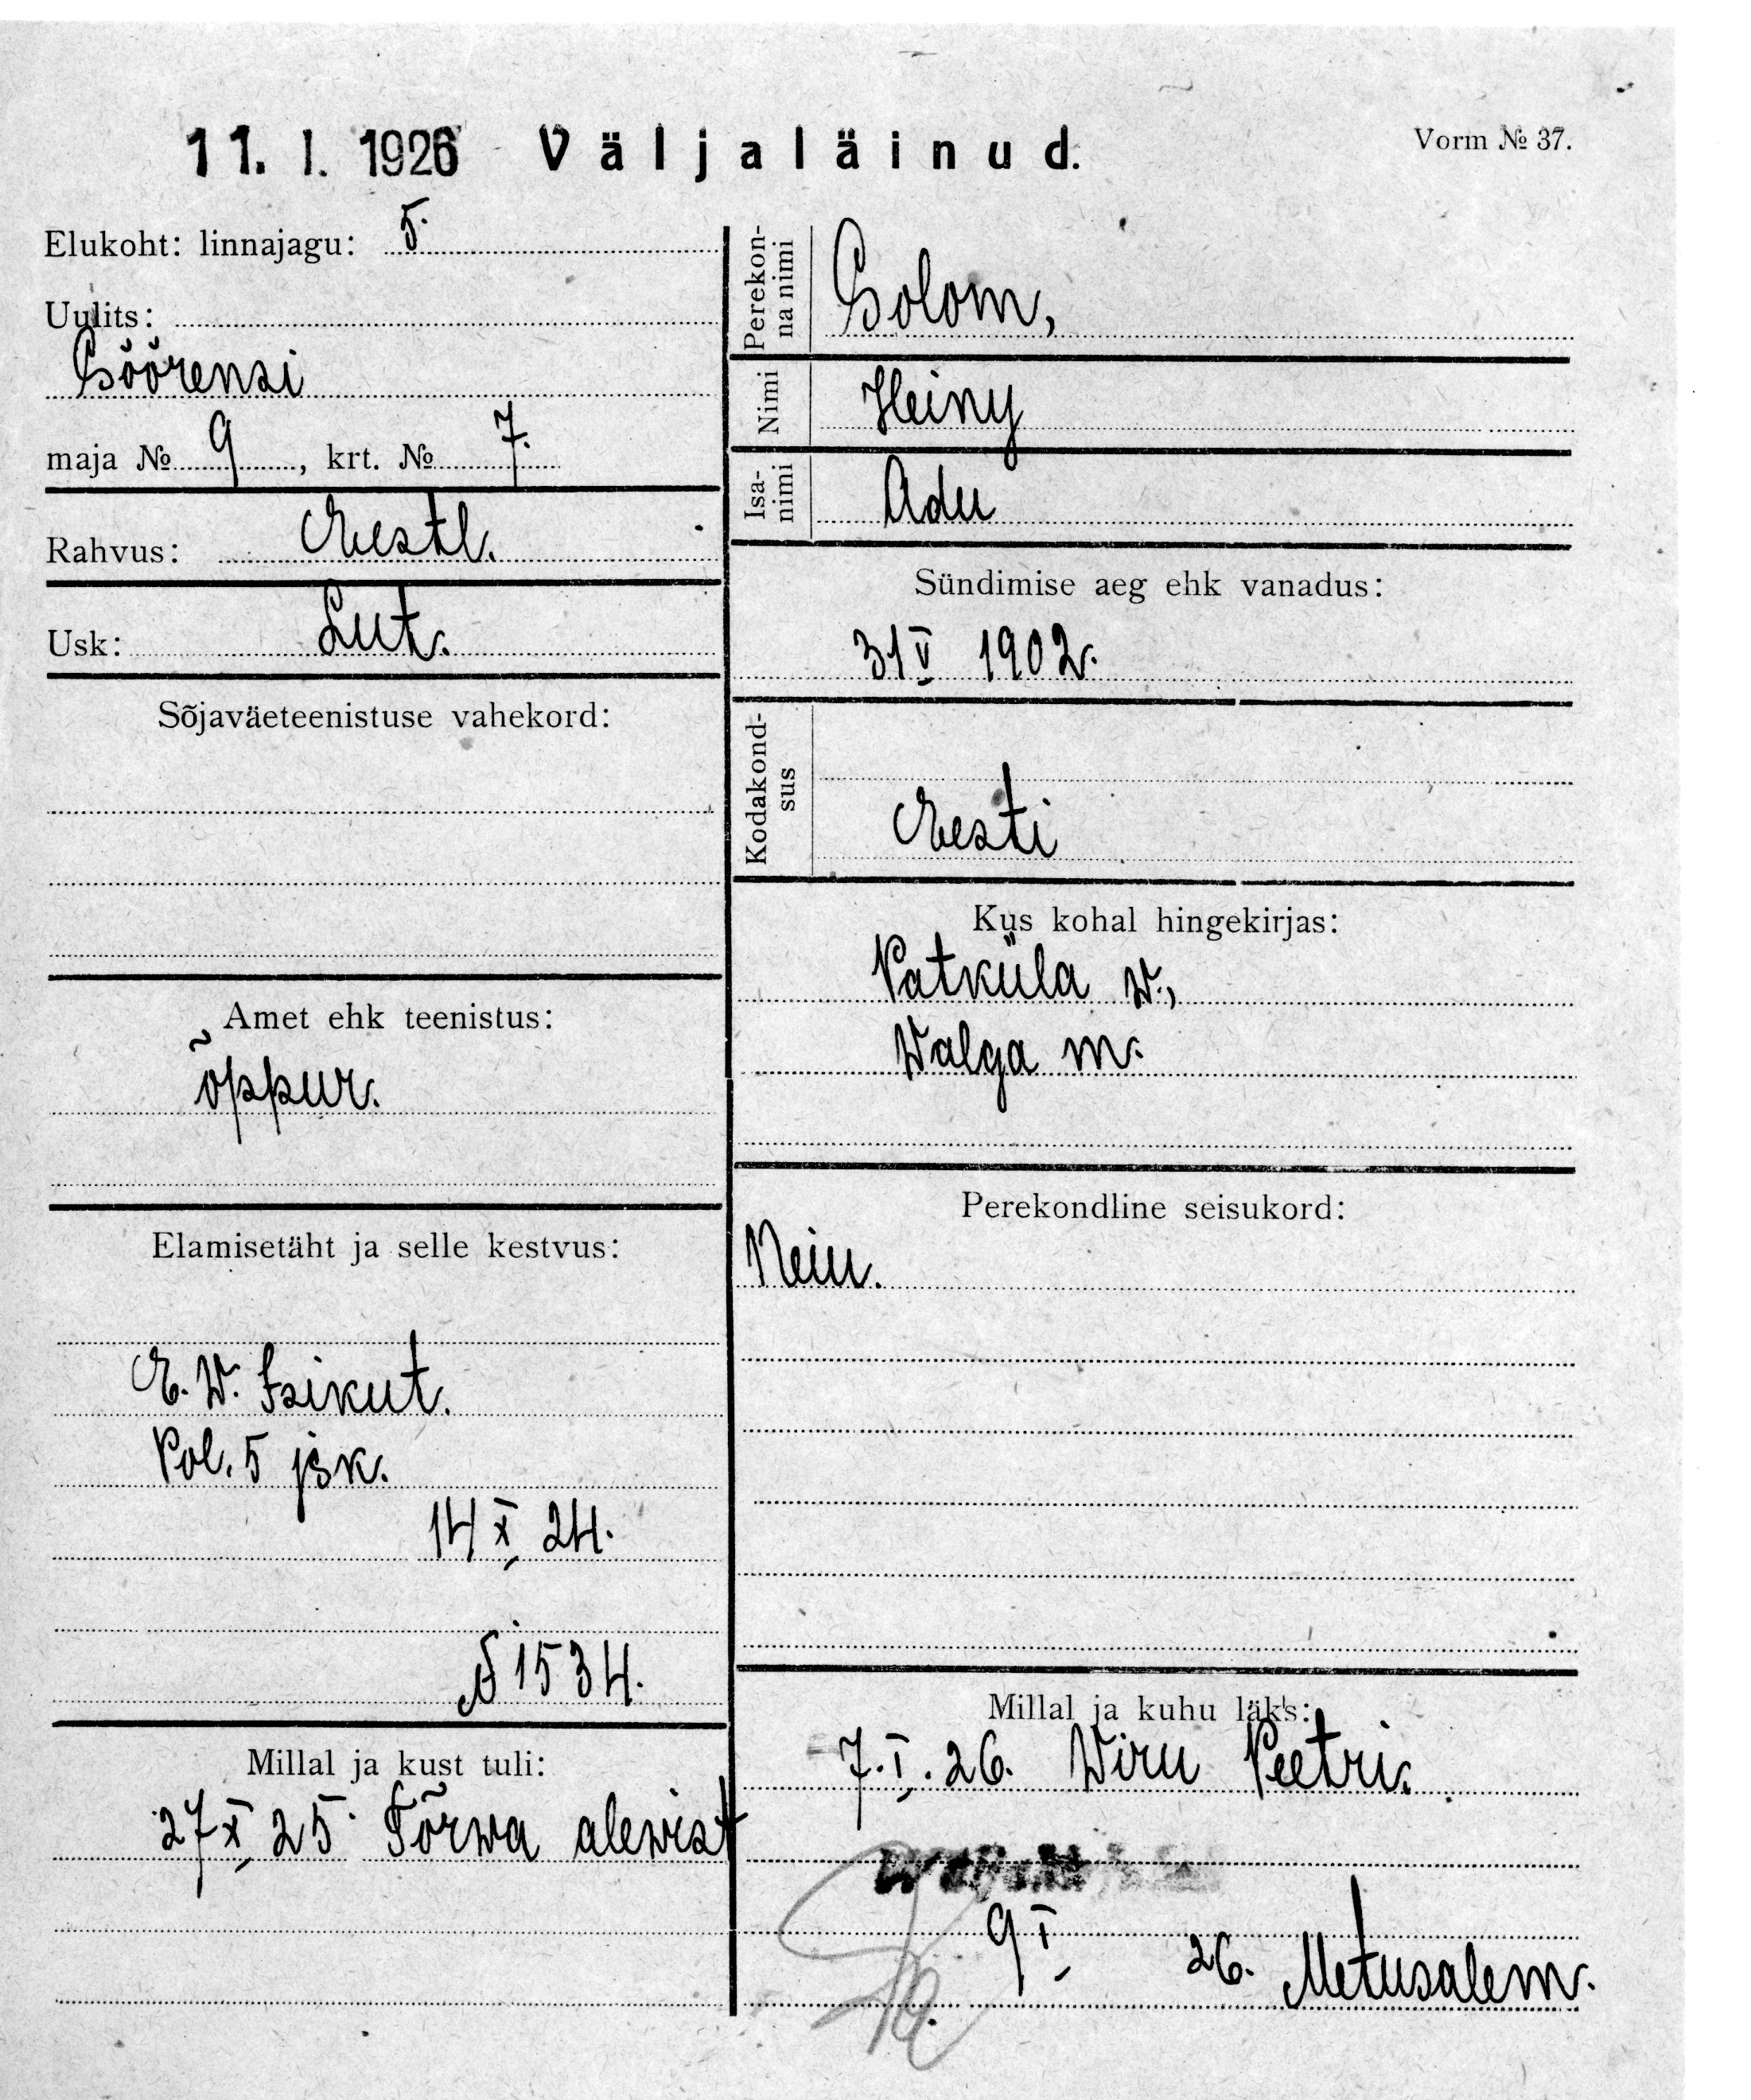 11. I. 1926 Väljaläinud.
Vorm № 37.
Elukoht: linnajagu: 5.
Uulits:
Söörensi
maja № 9, krt. № 7.
Rahvus: Eestl.
Usk: Lut.
Sõjaväeteenistuse vahekord:
Amet ehk teenistus:
õppur.
Elamisetäht ja selle kestvus:
E. W. Isikut.
Pol. 5 jsk.
14 X 24.
№ 1534.
Millal ja kust tuli:
27 X 25 Tõrwa alewist
Perekon-
na nimi
Solom,
Nimi Heiny
Isa-
nimi
Adu
Sündimise aeg ehk vanadus:
31 V 1902.
Kodakond-
sus
Eesti
Kus kohal hingekirjas:
Patküla w.,
Walga m.
Perekondline seisukord:
Neiu.
Millal ja kuhu läks:
7. I. 26. Wiru Peetri.
9 I 26. Metusalem.